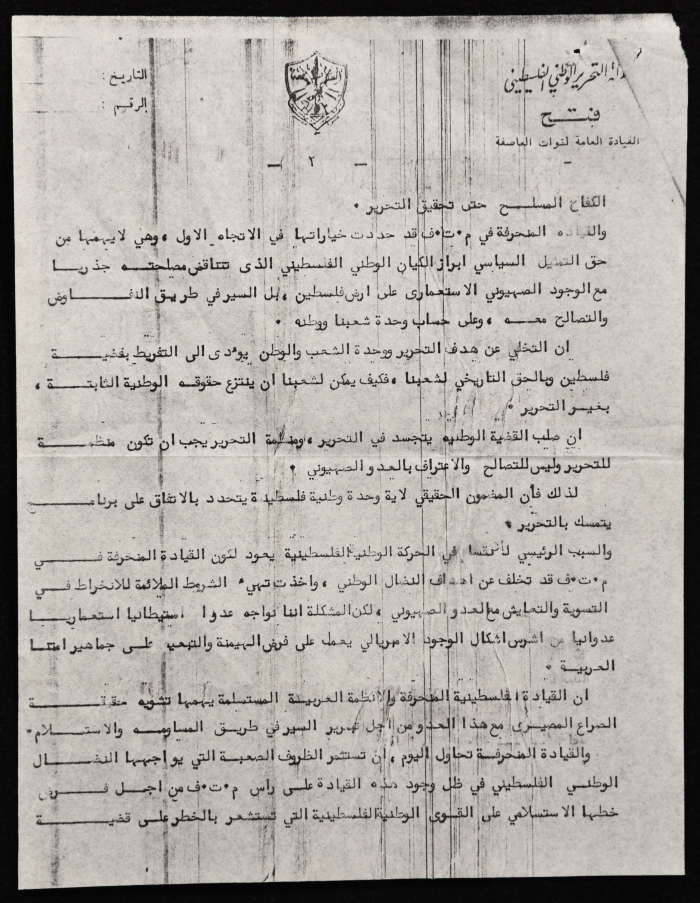 حركة التحرير الوطني الفلسطيني
فتح
القيادة العامة لقوات العاصفة
التاريخ :
الرقم :
— ٢ —
الكفاح المسلح حتى تحقيق التحرير .
والقياده المنحرفة في م.ت.ف قد حددت خياراتها في الاتجاه الاول ، وهي لا يهمها من
حق التمثيل السياسي ابراز الكيان الوطني الفلسطيني الذى تتناقض مصلحته جذريا
مع الوجود الصهيوني الاستعمارى على ارض فلسطين ، بل السير في طريق التفاوض
والتصالح معه ، وعلى حساب وحدة شعبنا ووطنه .
ان التخلي عن هدف التحرير ووحدة الشعب والوطن يؤدى الى التفريط بقضية
فلسطين وبالحق التاريخي لشعبنا ، فكيف يمكن لشعبنا ان ينتزع حقوقه الوطنية الثابتة ،
بغير التحرير .
ان صلب القضية الوطنيه يتجسد في التحرير ، ومنظمة التحرير يجب ان تكون منظمة
للتحرير وليس للتصالح والاعتراف بالعدو الصهيوني .
لذلك فأن المضمون الحقيقي لاية وحدة وطنية فلسطينية يتحدد بالاتفاق على برنامج
يتمسك بالتحرير .
والسبب الرئيسي لانقسام في الحركة الوطنية الفلسطينية يعود لكون القيادة المنحرفة في
م.ت.ف قد تخلف عن اهداف النضال الوطني ، واخذت تهيء الشروط الملائمة للانخراط في
التسوية والتعايش مع العدو الصهيوني ، لكن المشكلة اننا نواجه عدوا استيطانيا استعماريا
عدوانيا من اشرس اشكال الوجود الامبريالي يعمل على فرض الهيمنة والتبعيه على جماهير امتنا
العربية .
ان القيادة الفلسطينية المنحرفة والانظمة العربية المستسلمة يهمها تشويه حقيقة
الصراع المصيرى مع هذا العدو من اجل تبرير السير في طريق المساومه والاستسلام .
والقيادة المنحرفة تحاول اليوم ، ان تستثمر الظروف الصعبة التي يواجهها النضال
الوطني الفلسطيني في ظل وجود هذه القيادة على راس م.ت.ف من اجل فرض
خطها الاستسلامي على القوى الوطنية الفلسطينية التي تستشعر بالخطر على قضية